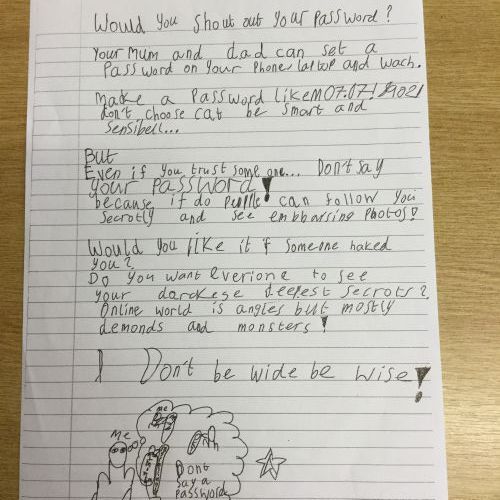 Would you shout out your password?
Your Mum and dad can set a
password on your phone, laptop and wach.
Make a password like
don't choose cat be smart and
sensibell...
But
Even if you trust some one... Don't say
your password!
because if do people can follow you
secrotly and see embbarsing photos!
Would you like it if someone haked
you?
Do you want everione to see
your darckese deepest secrots?
Online world is angles but mostly
demonds and monsters!
Don't be wide be wise!
me
Me
Dont
say a
password